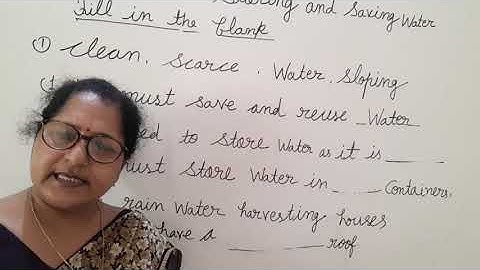 Storing and Saving Water
Fill in the blank
① Clean. Scarce. Water. Sloping
must save and reuse Water
to store Water as it is ____
must store Water in _ ____ Containers.
rain Water harvesting houses
have a ____ ____ roof